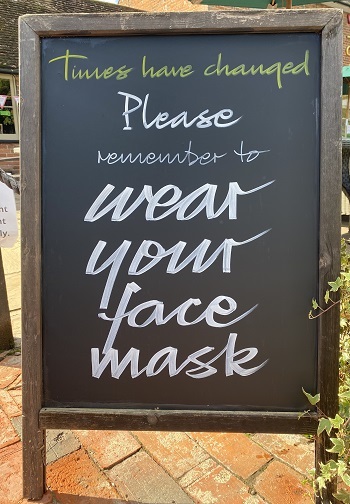 Times have changed
Please
remember to
wear
your
face
mask